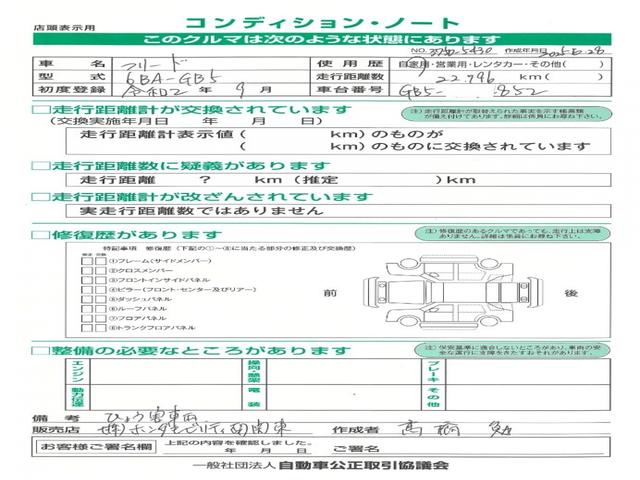 店頭表示用 コンディション・ノート
このクルマは次のような状態にあります
NO. 3750-5430 作成年月日
車名 フリード 使用歴 自家用・営業用・レンタカー・その他( )
型式 6BA-GB5 走行距離数 22,796 km( )
初度登録 令和2年 9月 車台番号 GB5- 852
□走行距離計が交換されています
(交換実施年月日 年 月 日)
注)走行距離計が取替えられた事実を示す帳票類が備え付けてあります。詳細は係員にお尋ね下さい。
走行距離計表示値( km)のものが
( km)のものに交換されています
□走行距離数に疑義があります
走行距離 ? km(推定 )km
□走行距離計が改ざんされています
実走行距離数ではありません
□修復歴があります
注)修復歴のあるクルマであっても、走行上は支障ありません。詳細は係員にお尋ね下さい。
特記事項 修復歴(下記の①~⑧に当たる部分の修正及び交換歴)
修正 交換
①フレーム(サイドメンバー)
②クロスメンバー
③フロントインサイドパネル
④ピラー(フロント・センター及びリアー)
⑤ダッシュパネル
⑥ルーフパネル
⑦フロアパネル
⑧トランクフロアパネル
前 後
□整備の必要なところがあります
注)保安基準に適合しないところがあり、車両の安全な運行に支障をきたすおそれがあります。
エンジン 操向・懸架 ブレーキ
動力伝達 電装 その他
備考 ひょう害車両
販売店 (株)ホンダモビリティ南関東 作成者 高橋
お客様ご署名欄 上記の内容を確認しました。
年 月 日 ご署名
一般社団法人 自動車公正取引協議会